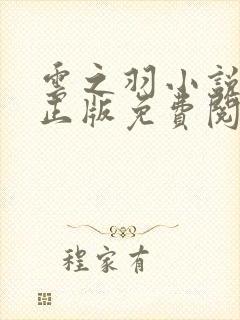 雲之羽小說
正版免費閱
程家有